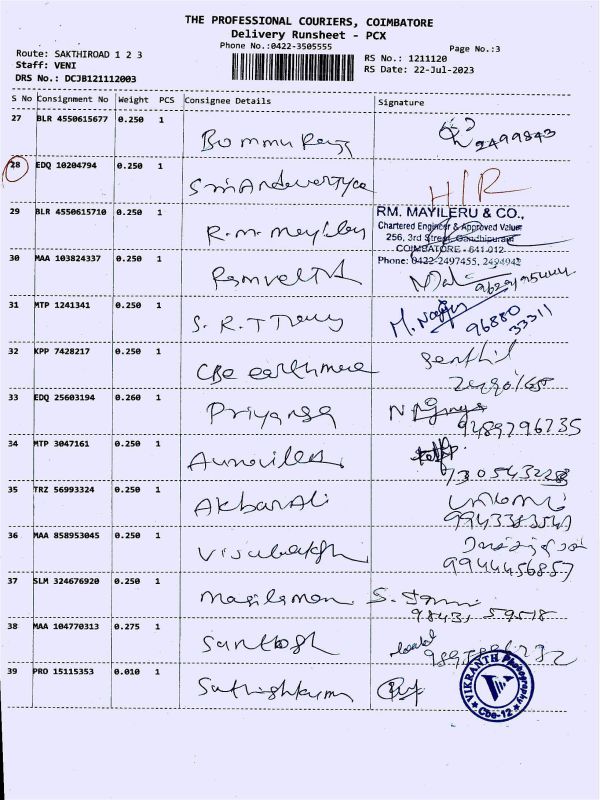 THE PROFESSIONAL COURIERS, COIMBATORE
Delivery Runsheet - PCX
Phone No.:0422-3505555
Page No.:3
Route: SAKTHIROAD 1 2 3
Staff: VENI
DRS No.: DCJB121112003
RS No.: 1211120
RS Date: 22-Jul-2023
S No Consignment No Weight PCS Consignee Details Signature
27 BLR 4550615677 0.250 1
2499843
28 EDQ 10204794 0.250 1
H/R
29 BLR 4550615710 0.250 1 R.M. Mayileru
RM. MAYILERU & CO.,
Chartered Engineer & Approved Valuer
256, 3rd Street, Gandhipuram
COIMBATORE - 641 012
Phone: 0422-2497455, 2494942
30 MAA 103824337 0.250 1
31 MTP 1241341 0.250 1 S. R. T
96880
33311
32 KPP 7428217 0.250 1 CBe earthmore Senthil
33 EDQ 25603194 0.260 1 Priyanga
9489796735
34 MTP 3047161 0.250 1
7305543228
35 TRZ 56993324 0.250 1 Akbar Ali
36 MAA 858953045 0.250 1
9944456857
37 SLM 324676920 0.250 1 Masilamani
98431 59518
38 MAA 104770313 0.275 1 Santhosh
39 PRO 15115353 0.010 1 Sathishkumar
VIKRANTH Photography
Cbe-12